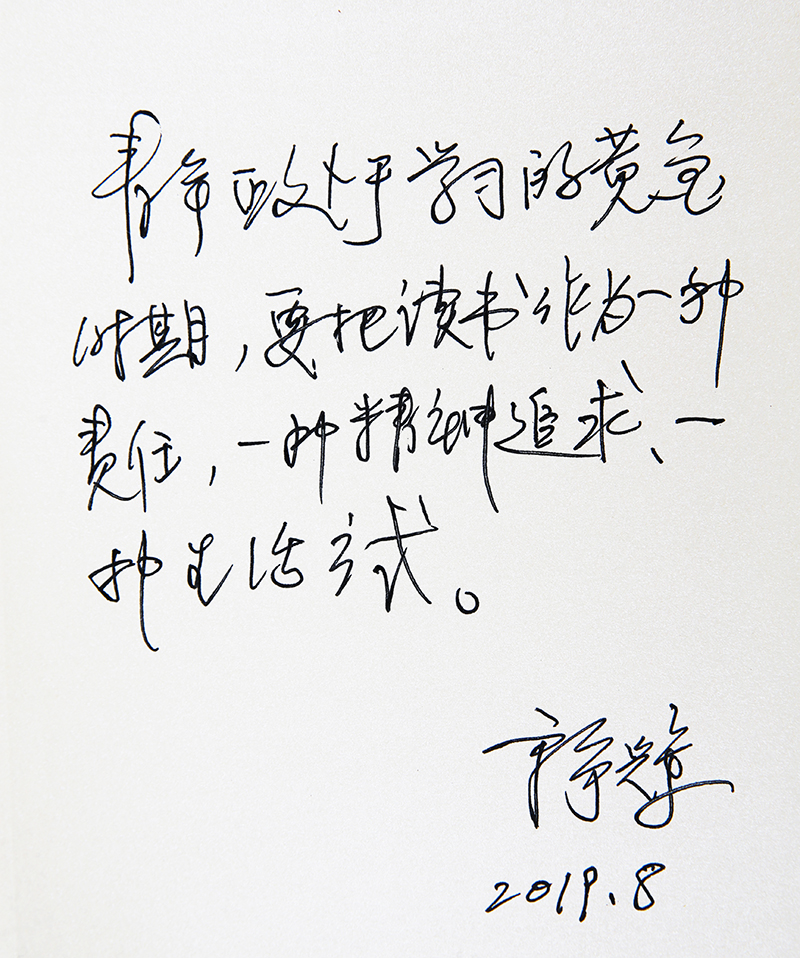 青年正处于学习的黄金
时期,要把读书作为一种
责任,一种精神追求、一
种生活方式。
2019.8